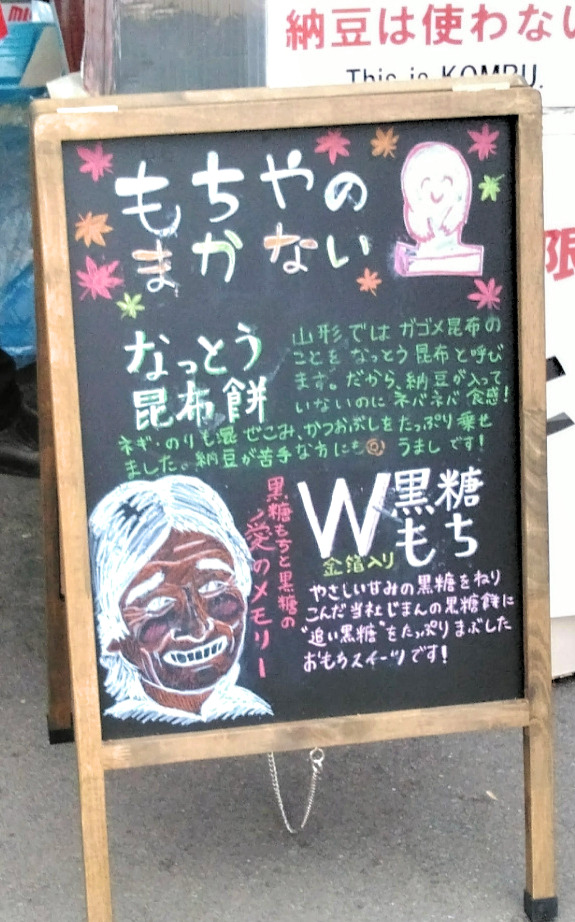 納豆は使わない
This is KOMBU.
限
もちやの
まかない
なっとう
昆布餅
山形ではガゴメ昆布の
ことをなっとう昆布と呼び
ます。だから、納豆が入って
いないのにネバネバ食感!
ネギ・のりも混ぜこみ、かつおぶしをたっぷり乗せ
ました。納豆が苦手な方にも◎うましです!
黒糖もちと黒糖の
愛のメモリー
W黒糖
もち
金箔入り
やさしい甘みの黒糖をねり
こんだ当社じまんの黒糖餅に
"追い黒糖"をたっぷりまぶした
おもちスイーツです!